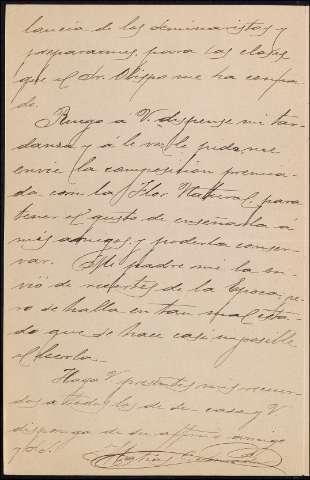 lancia de los seminaristas y
prepararme para las clases
que el Sr. Obispo me ha confia
do.
Ruego a V. dispense mi tar-
danza y á le vez le pido me
envie la composición premia-
da con la Flor Natural, para
tener el gusto de enseñarla á
mis amigos, y poderla conser-
var. Mi padre me la en-
vió de recortes de la Epoca; pe-
ro se halla en tan mal esta-
do que se hace casi imposible
el leerla.
Haga V. presentes mis recuer-
dos a todos los de su casa y V.
disponga de su affmo. amigo
y